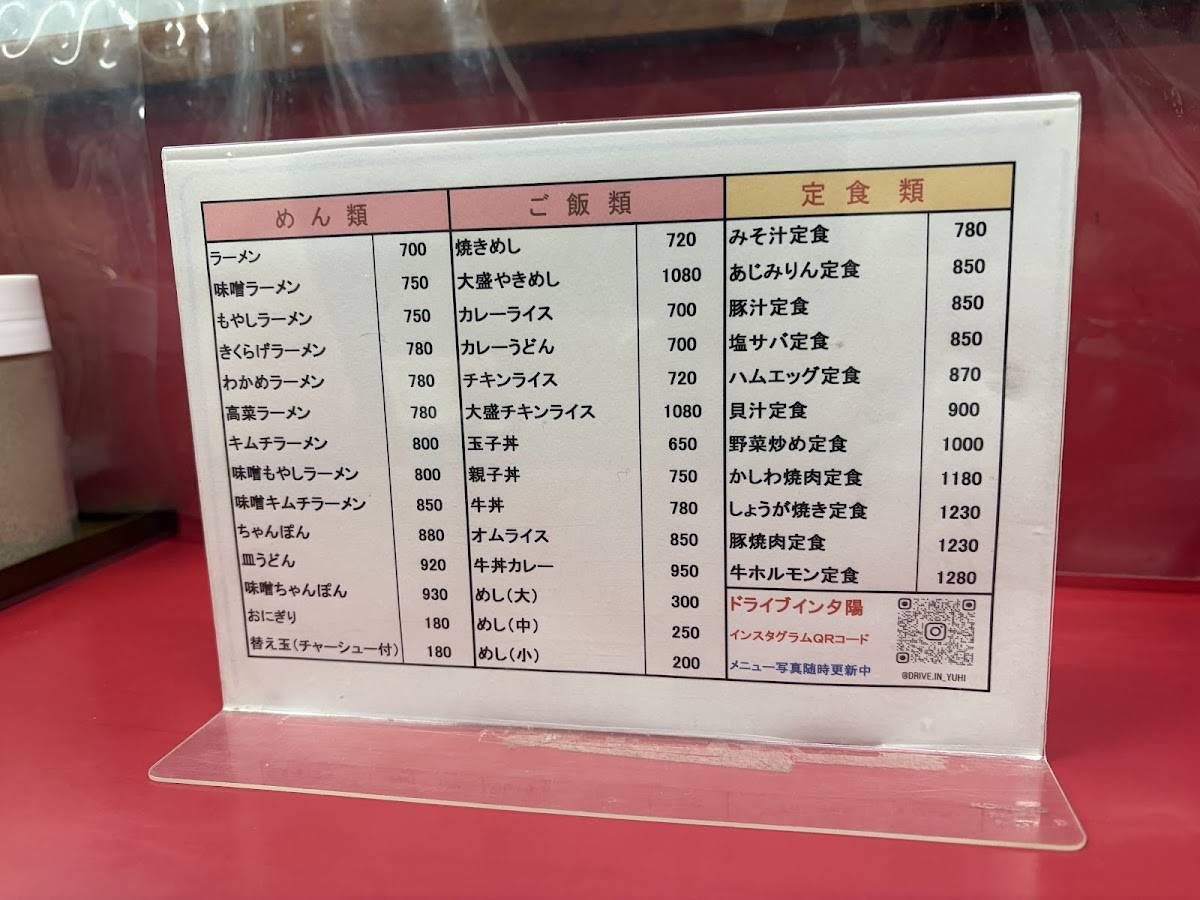 めん類
ラーメン 700
味噌ラーメン 750
もやしラーメン 750
きくらげラーメン 780
わかめラーメン 780
高菜ラーメン 780
キムチラーメン 800
味噌もやしラーメン 800
味噌キムチラーメン 850
ちゃんぽん 880
皿うどん 920
味噌ちゃんぽん 930
おにぎり 180
替え玉(チャーシュー付) 180
ご飯類
焼きめし 720
大盛やきめし 1080
カレーライス 700
カレーうどん 700
チキンライス 720
大盛チキンライス 1080
玉子丼 650
親子丼 750
牛丼 780
オムライス 850
牛丼カレー 950
めし(大) 300
めし(中) 250
めし(小) 200
定食類
みそ汁定食 780
あじみりん定食 850
豚汁定食 850
塩サバ定食 850
ハムエッグ定食 870
貝汁定食 900
野菜炒め定食 1000
かしわ焼肉定食 1180
しょうが焼き定食 1230
豚焼肉定食 1230
牛ホルモン定食 1280
ドライブインタ陽
インスタグラムQRコード
メニュー写真随時更新中
@DRIVE.IN_YUHI